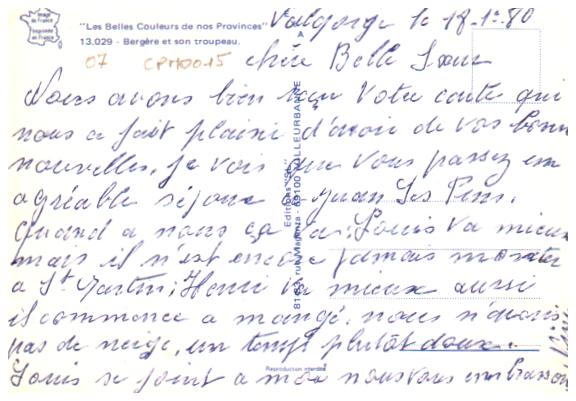 Image de France
Imprimée en France
"Les Belles Couleurs de nos Provinces"
13.029 - Bergère et son troupeau.
07 CPM0015
Valgorge le 18-1-80
chère Belle Sœur
Nous avons bien reçu Votre carte qui
nous a fait plaisir d'avoir de vos bonne
nouvelles, je vois que vous passez un
agréable séjour a juan Les Pins.
quand a nous ça va: Louis va mieux
mais il n'est encore jamais monter
a St Martin; Henri va mieux aussi
il commence a mangé. nous n'avons
pas de neige, un temps plutôt doux.
Louis se joint a moi nous vous embrassons
Editions "
69100 VILLEURBANNE
Reproduction interdite